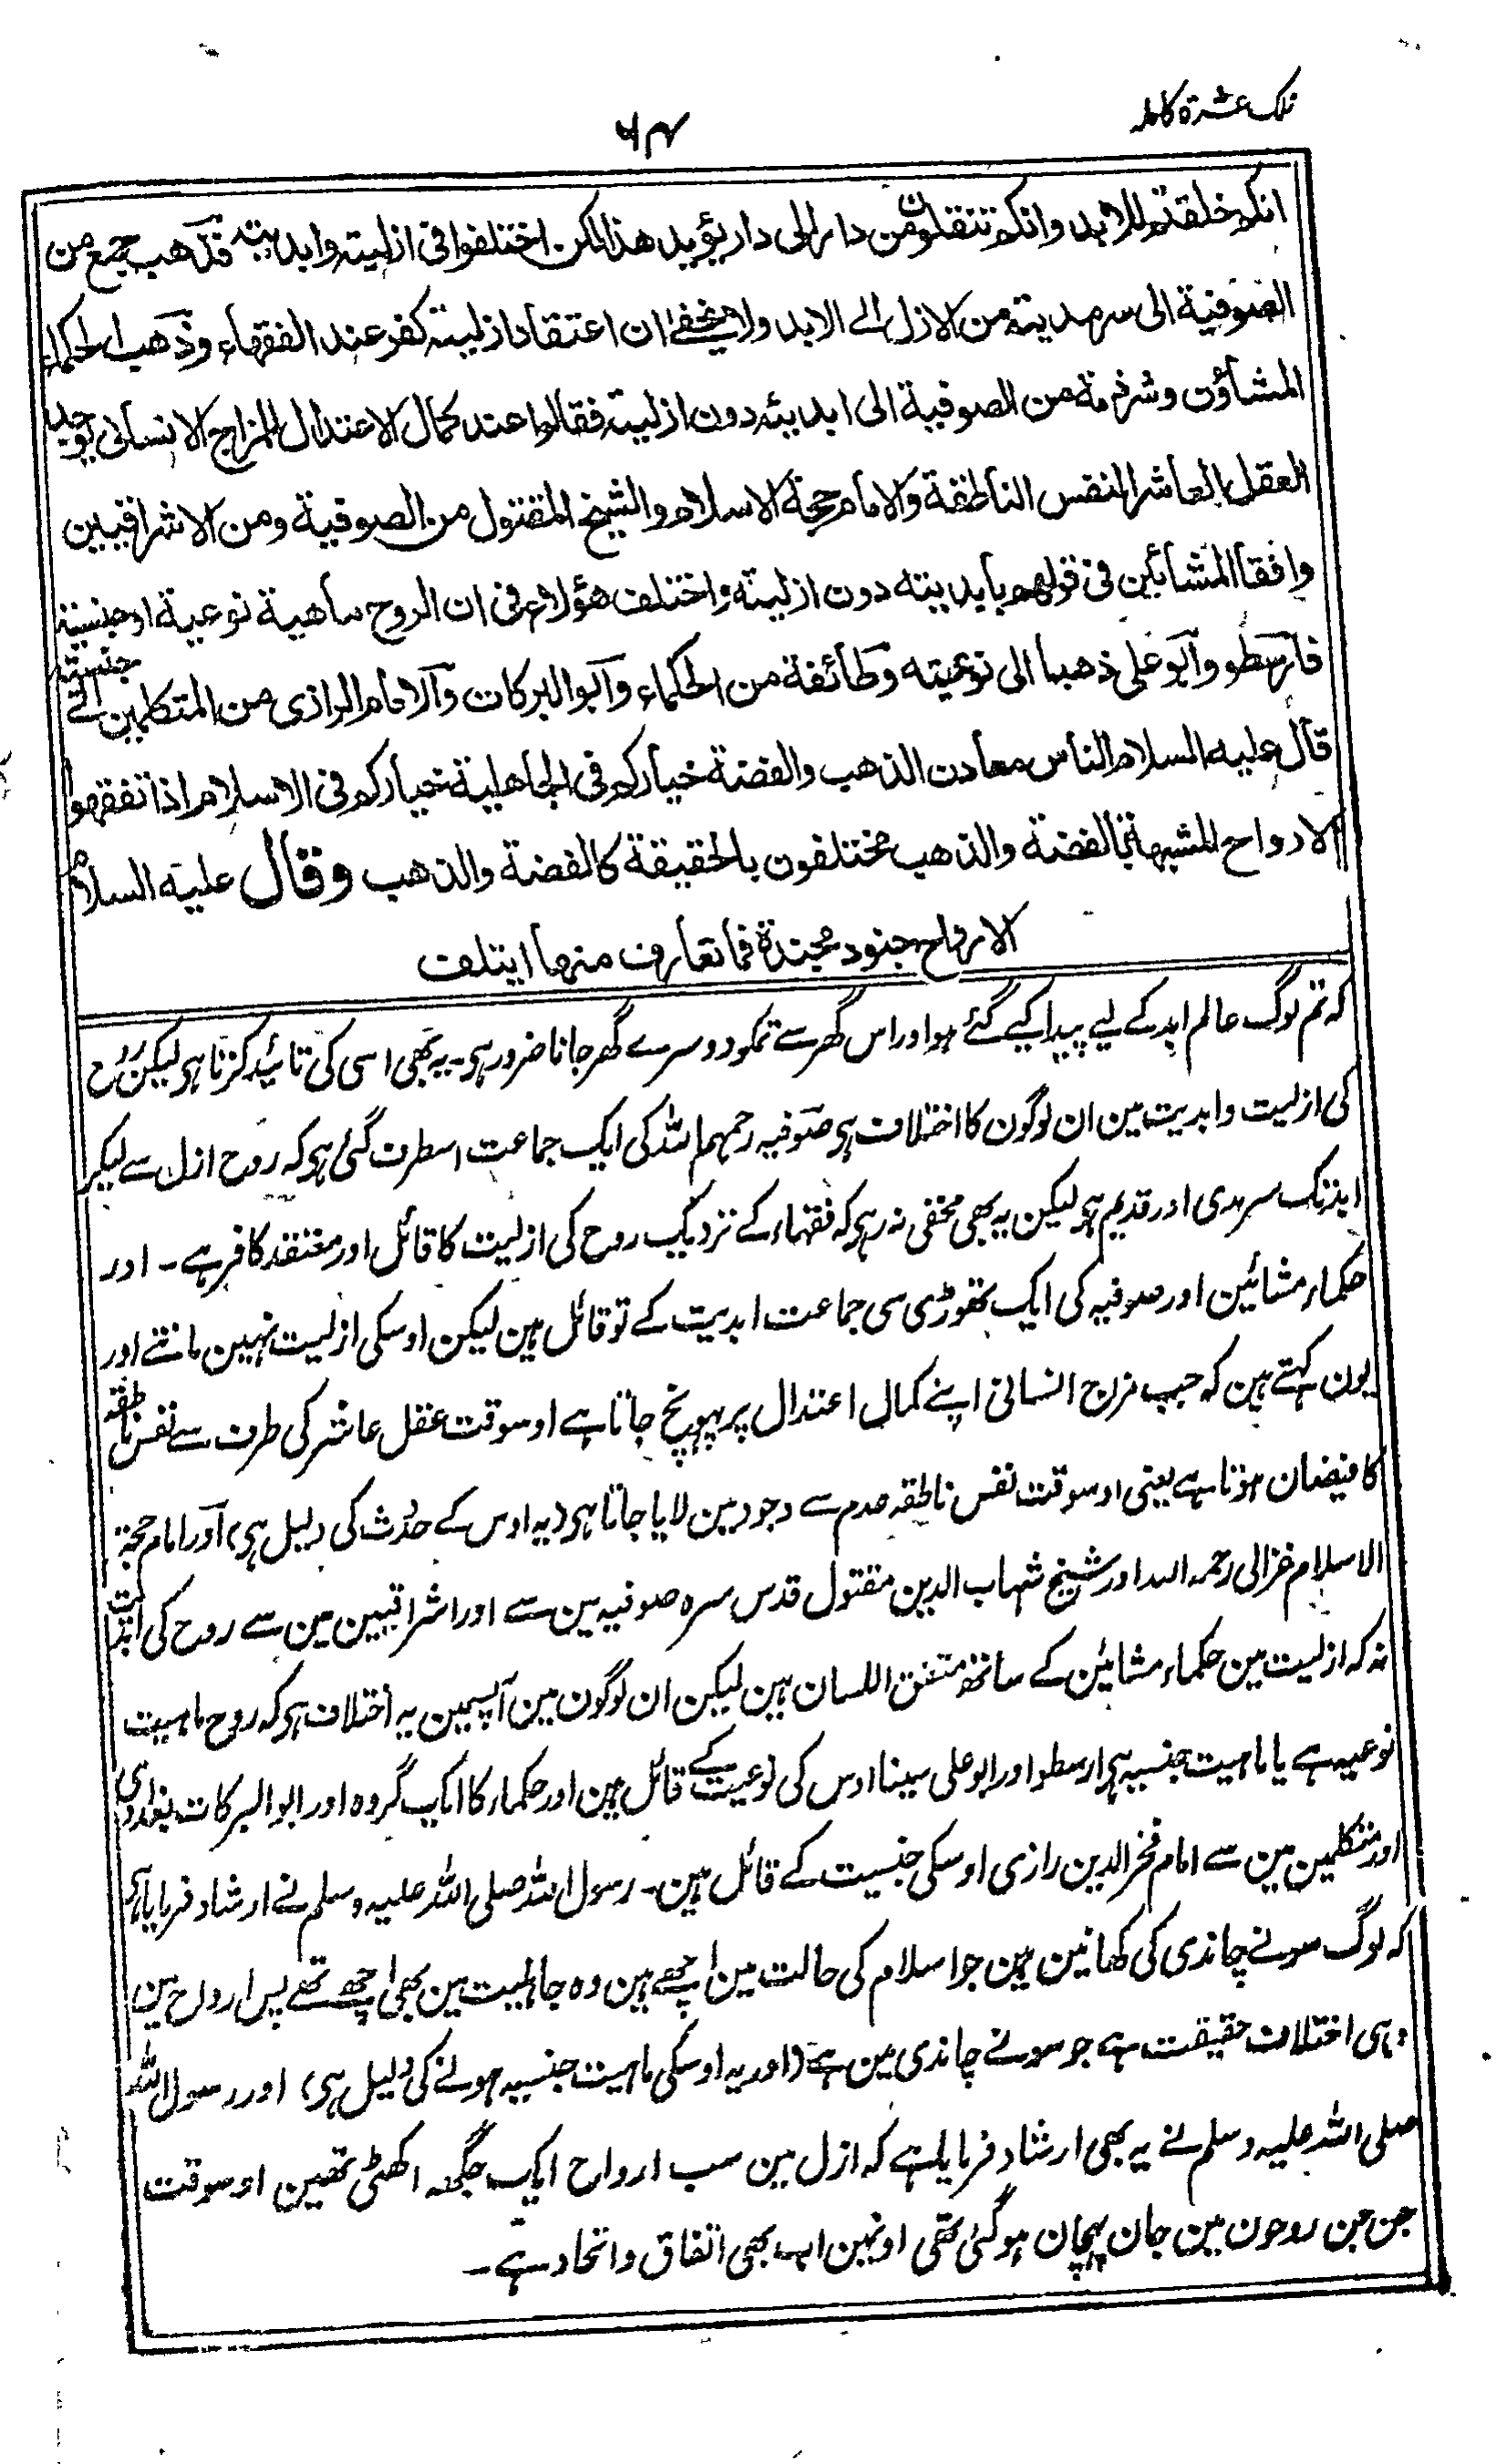 تلک عشرة کاملہ
۶۴
انکم خلقتم للابد وانکم تنتقلون من دار الی دار یؤید هذا لکن اختلفوا فی ازلیته وابدیته فذهب جمع من
الصوفیة الی سرمدیته من الازل الی الابد ولا یخفی ان اعتقاد ازلیته کفر عند الفقهاء وذهب الحکماء
المشاؤن وشرذمة من الصوفیة الی ابدیته دون ازلیته فقالوا عند کمال الاعتدال المزاج الانسانی یوجد
العقل العاشر النفس الناطقة والامام حجة الاسلام والشیخ المقتول من الصوفیة ومن الاشراقیین
وافقا المشائین فی قولهم بابدیته دون ازلیته واختلف هؤلاء فی ان الروح ماهیة نوعیة او جنسیة
فارسطو وابو علی ذهبا الی نوعیته وطائفة من الحکماء وابو البرکات والامام الرازی من المتکلمین الی جنسیته
قال علیه السلام الناس معادن الذهب والفضة خیارکم فی الجاهلیة خیارکم فی الاسلام اذا تفقهوا
الارواح المشبهة بالفضة والذهب مختلفون بالحقیقة کالفضة والذهب وقال علیه السلام
الارواح جنود مجندة فما تعارف منها ایتلف
کہ تم لوگ عالم ابد کے لیے پیدا کیے گئے ہو اور اس گھر سے تمکو دوسرے گھر جانا ضرور ہی۔ یہ بھی اسی کی تائید کرتا ہی لیکن روح
کی ازلیت وابدیت مین ان لوگون کا اختلاف ہی صوفیہ رحمہم اللہ کی ایک جماعت اسطرف گئی ہی کہ روح ازل سے لیکر
ابد تک سرمدی اور قدیم ہی لیکن یہ بھی مخفی نہ رہی کہ فقہاء کے نزدیک روح کی ازلیت کا قائل اور معتقد کافر ہے۔ اور
حکماء مشائین اور صوفیہ کی ایک تھوڑی سی جماعت ابدیت کے تو قائل ہین لیکن اوسکی ازلیت نہین مانتے اور
یون کہتے ہین کہ جب مزاج انسانی اپنے کمال اعتدال پر پہونچ جاتا ہے اوسوقت عقل عاشر کی طرف سے نفس ناطقہ
کا فیضان ہوتا ہے یعنی اوسوقت نفس ناطقہ عدم سے وجود مین لایا جاتا ہی (یہ اوس کے حدوث کی دلیل ہی) اور امام حجۃ
الاسلام غزالی رحمہ اللہ اور شیخ شہاب الدین مقتول قدس سرہ صوفیہ مین سے اور اشراقیین مین سے روح کی ابدیت
نہ کہ ازلیت مین حکماء مشائین کے ساتھ متفق اللسان ہین لیکن ان لوگون مین آپسمین یہ اختلاف ہی کہ روح ماہیت
نوعیہ ہے یا ماہیت جنسیہ ہی ارسطو اور ابو علی سینا اوس کی نوعیت کے قائل ہین اور حکماء کا ایک گروہ اور ابو البرکات بغدادی
اور متکلمین مین سے امام فخر الدین رازی اوسکی جنسیت کے قائل ہین۔ رسول اللہ صلی اللہ علیہ وسلم نے ارشاد فرمایا ہی
کہ لوگ سونے چاندی کی کھانین ہین جو اسلام کی حالت مین اچھے ہین وہ جاہلیت مین بھی اچھے تھے پس ارواح مین
وہی اختلاف حقیقت ہے جو سونے چاندی مین ہے (اور یہ اوسکی ماہیت جنسیہ ہونے کی دلیل ہی) اور رسول اللہ
صلی اللہ علیہ وسلم نے یہ بھی ارشاد فرمایا ہے کہ ازل مین سب ارواح ایک جگہ اکھٹی تھین اوسوقت
جن جن روحون مین جان پہچان ہو گئی تھی اونہین اب بھی اتفاق و اتحاد ہے۔